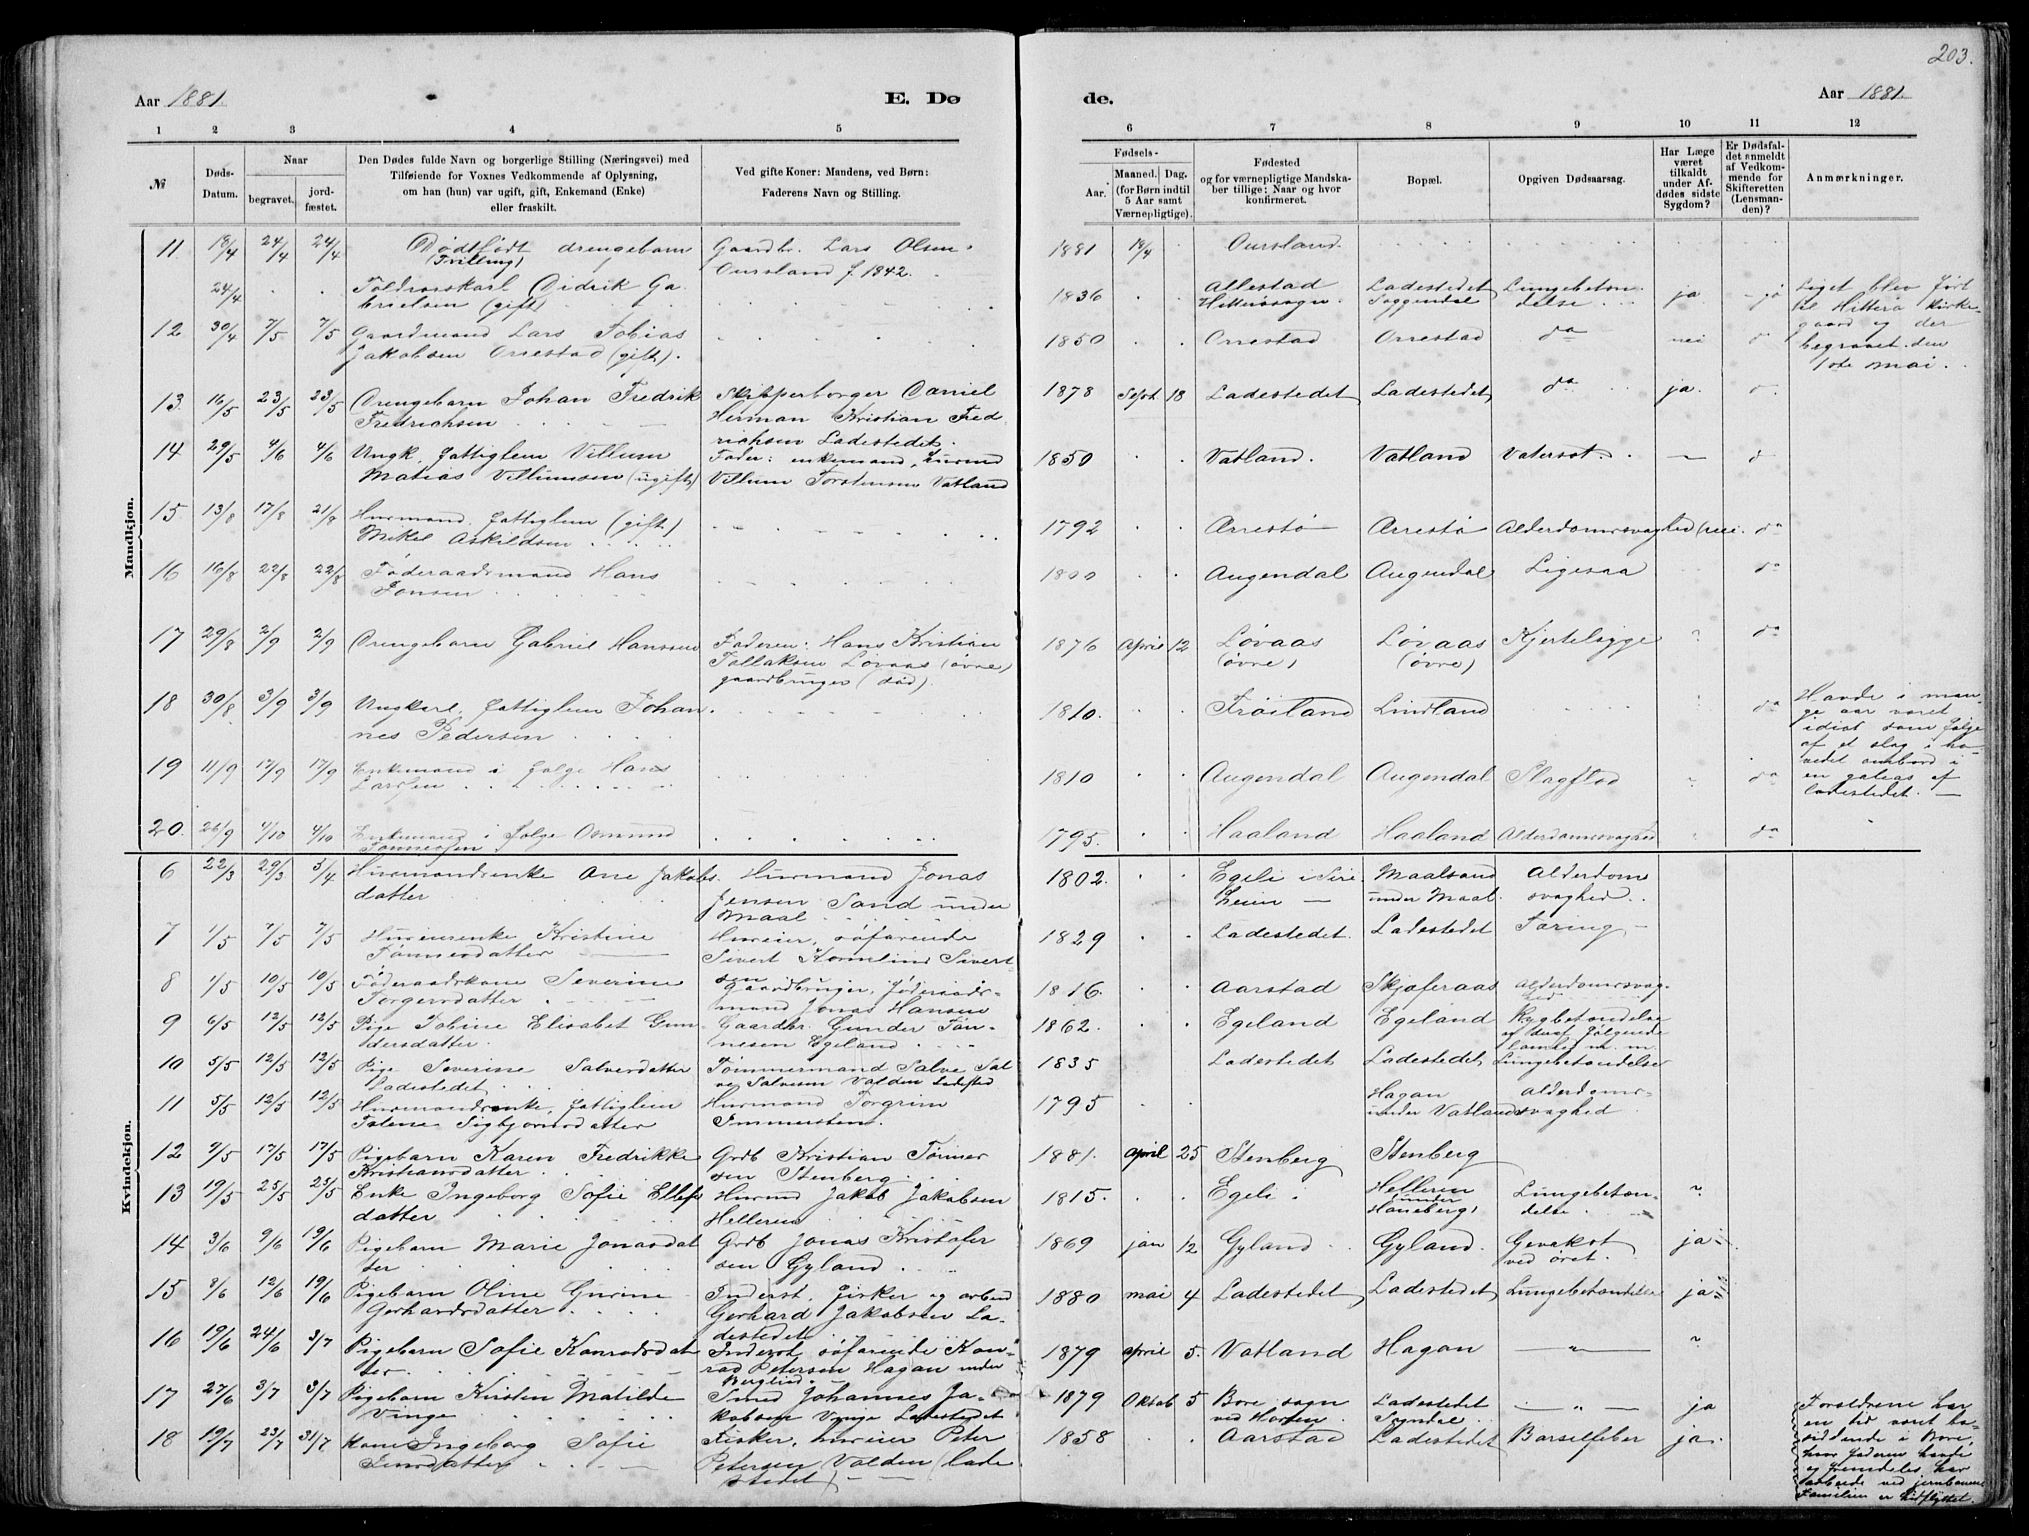 203.
Aar 1881. E. Dø
de. Aar 1881.
1 2 3 4 5
6 7 8 9 10 11 12
№ Døds-Datum. Naar begravet. jord-fæstet. Den Dødes fulde Navn og borgerlige Stilling (Næringsvei) med
Tilføiende for Voxnes Vedkommende af Oplysning,
om han (hun) var ugift, gift, Enkemand (Enke)
eller fraskilt.
Ved gifte Koner: Mandens, ved Børn:
Faderens Navn og Stilling.
Fødsels-
Aar. Maaned. Dag.
(for Børn indtil
5 Aar samt
Værnepligtige).
Fødested
og for værnepligtige Mandska-
ber tillige: Naar og hvor
konfirmeret.
Bopæl.
Opgiven Dødsaarsag.
Har Læge
været
tilkaldt
under Af-
dødes sidste
Sygdom?
Er Dødsfal-
det anmeldt
af Vedkom-
mende for
Skifteretten
(Lensman-
den)?
Anmærkninger.
Mandkjøn.
11 18/4 24/4 24/4 Dødsfødt drengebarn Gaardbr. Lars Olsen 1881 18/4 Oursland
(Tvilling) Oursland f. 1842.
24/4 Toldvorskarl Didrik Ga 1836 Allestad Ladestedet Lungebeton ja ja Liget blev ført
brielsen (gift) Hitterøsogn Soggendal delse til Hitterø kirke-
12 30/4 7/5 7/5 Gaardmand Lars Tobias 1850 Orrestad Orrestad do nei gaard og der
Jakobsen Orrestad (gift). begravet den
1ste mai.
13 16/5 23/5 23/5 Drengebarn Johan Fredrik Skipperborger Daniel 1878 Sept 18 Ladestedet Ladestedet do ja
Fredrichsen Herman Kristian Fred
richsen Ladestedet.
14 29/5 4/6 4/6 Ungk. fattiglem Villum Fader: enkemand, husmd 1850 Vatland. Vatland Vatersot.
Matias Villumsen (ugift) Villum Torstensen Vatland
15 13/8 17/8 21/8 Husmand, fattiglem (gift) 1792 Arrestø Arrestø Alderdomssvaghed nei. do
Mikel Askildsen
16 16/8 22/8 22/8 Føderaadsmand Hans 1800 Augendal Augendal Ligesaa do
Tonsen
17 29/8 2/9 2/9 Drengebarn Gabriel Hanssen Faderen: Hans Kristian 1876 April 12 Løvaas Løvaas Kjertelsyge ? do
Tollaksen Løvaas (øvre) (øvre) (øvre)
gaardbruger (død).
18 30/8 3/9 3/9 Ungkarl, fattiglem Johan 1810. Frøiland Lindland do Havde i man
nes Pedersen ge aar været
idiot som følge
af et slag i ho
19 11/9 17/9 17/9 Enkemand i følge Hans 1810 Augendal Augendal Slagflod do vedet ombord i
Larssen en galeas af
ladestedet.
20. 26/9 4/10 4/10 Enkemand i følge Osmund 1795. Haaland Haaland Alderdomssvaghed do
Tønnessen
Kvindekjøn.
6 22/3 29/3 3/4 Husmandsenke Ane Jakobs. Husmand Jonas 1802. Egeli i Sire Maalsand Alderdoms
datter Jensen Sand under under Maal. svaghed.
Maal
7 1/5 7/5 7/5 Huseierenke Kristine Huseier, søfarende 1829 Ladestedet. Ladestedet Tæring
Tønnesdatter Sivert Kornelius Sivert
sen
8 1/5 10/5 10/5 Føderaadskone Severine Gaardbruger, føderaads- 1816. Aarstad Skjøferaas Alderdomssvag
Torgersdatter mand Jonas Hansen hed
9 6/5 12/5 12/5 Pige Tobine Elisabet Gun- Gaardbr. Gunder Tøn- 1862. Egeland Egeland Rygbetændelse
dersdatter nesen Egeland
10 5/5 12/5 12/5 Pige Severine Salvesdatter Tømmermand Salve Sal 1835 Ladestedet Ladestedet Lungebetændelse
Ladestedet ve Salvesen Valden Ladested
11 5/5 12/5 12/5 Husmandsenke, fattiglem Husmand Torgrim 1795 Hagan alderdoms-
Talene Sigbjørnsdatter Immersten. under Vatland svaghed
12 7/5 17/5 17/5 Pigebarn Karen Fredrikke Grdb Kristian Tønnes 1881. april 25 Stenberg Stenberg
Kristiansdatter sen Stenberg
13 19/5 25/5 25/5 Enke Ingeborg Sofie Ellefs Husmd Jakob Jakobsen 1815. Egeli Helleren Lungebeton- ?
datter Helleren (under delse
Haneberg)
14 3/6 9/6 19/6 Pigebarn Marie Jonasdat Grdb Jonas Kristofer 1869 jan 12 Gyland Gyland. Gevækst ja
ter sen Gyland ved øret.
15 8/6 12/6 19/6 Pigebarn Oline Gurine Inderst, fisker og arbeid 1880 mai 4 Ladestedet Ladestedet Lungebetændelse ja
Gerhardsdatter Gerhard Jakobsen La-
destedet
16 19/6 24/6 3/7 Pigebarn Sofie Konradsdat Inderst søfarende Kon- 1879 april 5. Vatland Hagan — " — ?
ter rad Petersen Hagan under
Berglund
17 27/6 3/7 3/7 Pigebarn Kirstin Matilde Smed Johannes Ja- 1879 Oktob 5 Bore sogn Ladestedet — " — ja Foraldrene har
Vinge kobsen Vinge Ladestedet ved Horten Sogndal en tid været bo
18 19/7 23/7 31/7 Kone Ingeborg Sofie Fisker, huseier Peter 1858 Aarstad Ladestedet Barselfeber ja. siddende i Bore,
Jensdatter Petersen Valden (lade hvor faderen havde
stedet) og fremdeles har
arbeide ved jernbanen
Familien er hidflyttet.